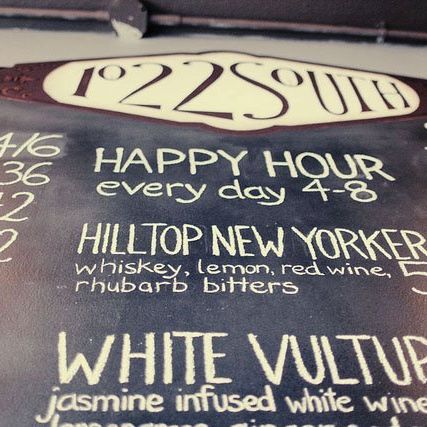 1022 SOUTH
4/6
36
HAPPY HOUR
every day 4-8
HILLTOP NEW YORKER
whiskey, lemon, red wine,
rhubarb bitters
WHITE
jasmine infused white wine